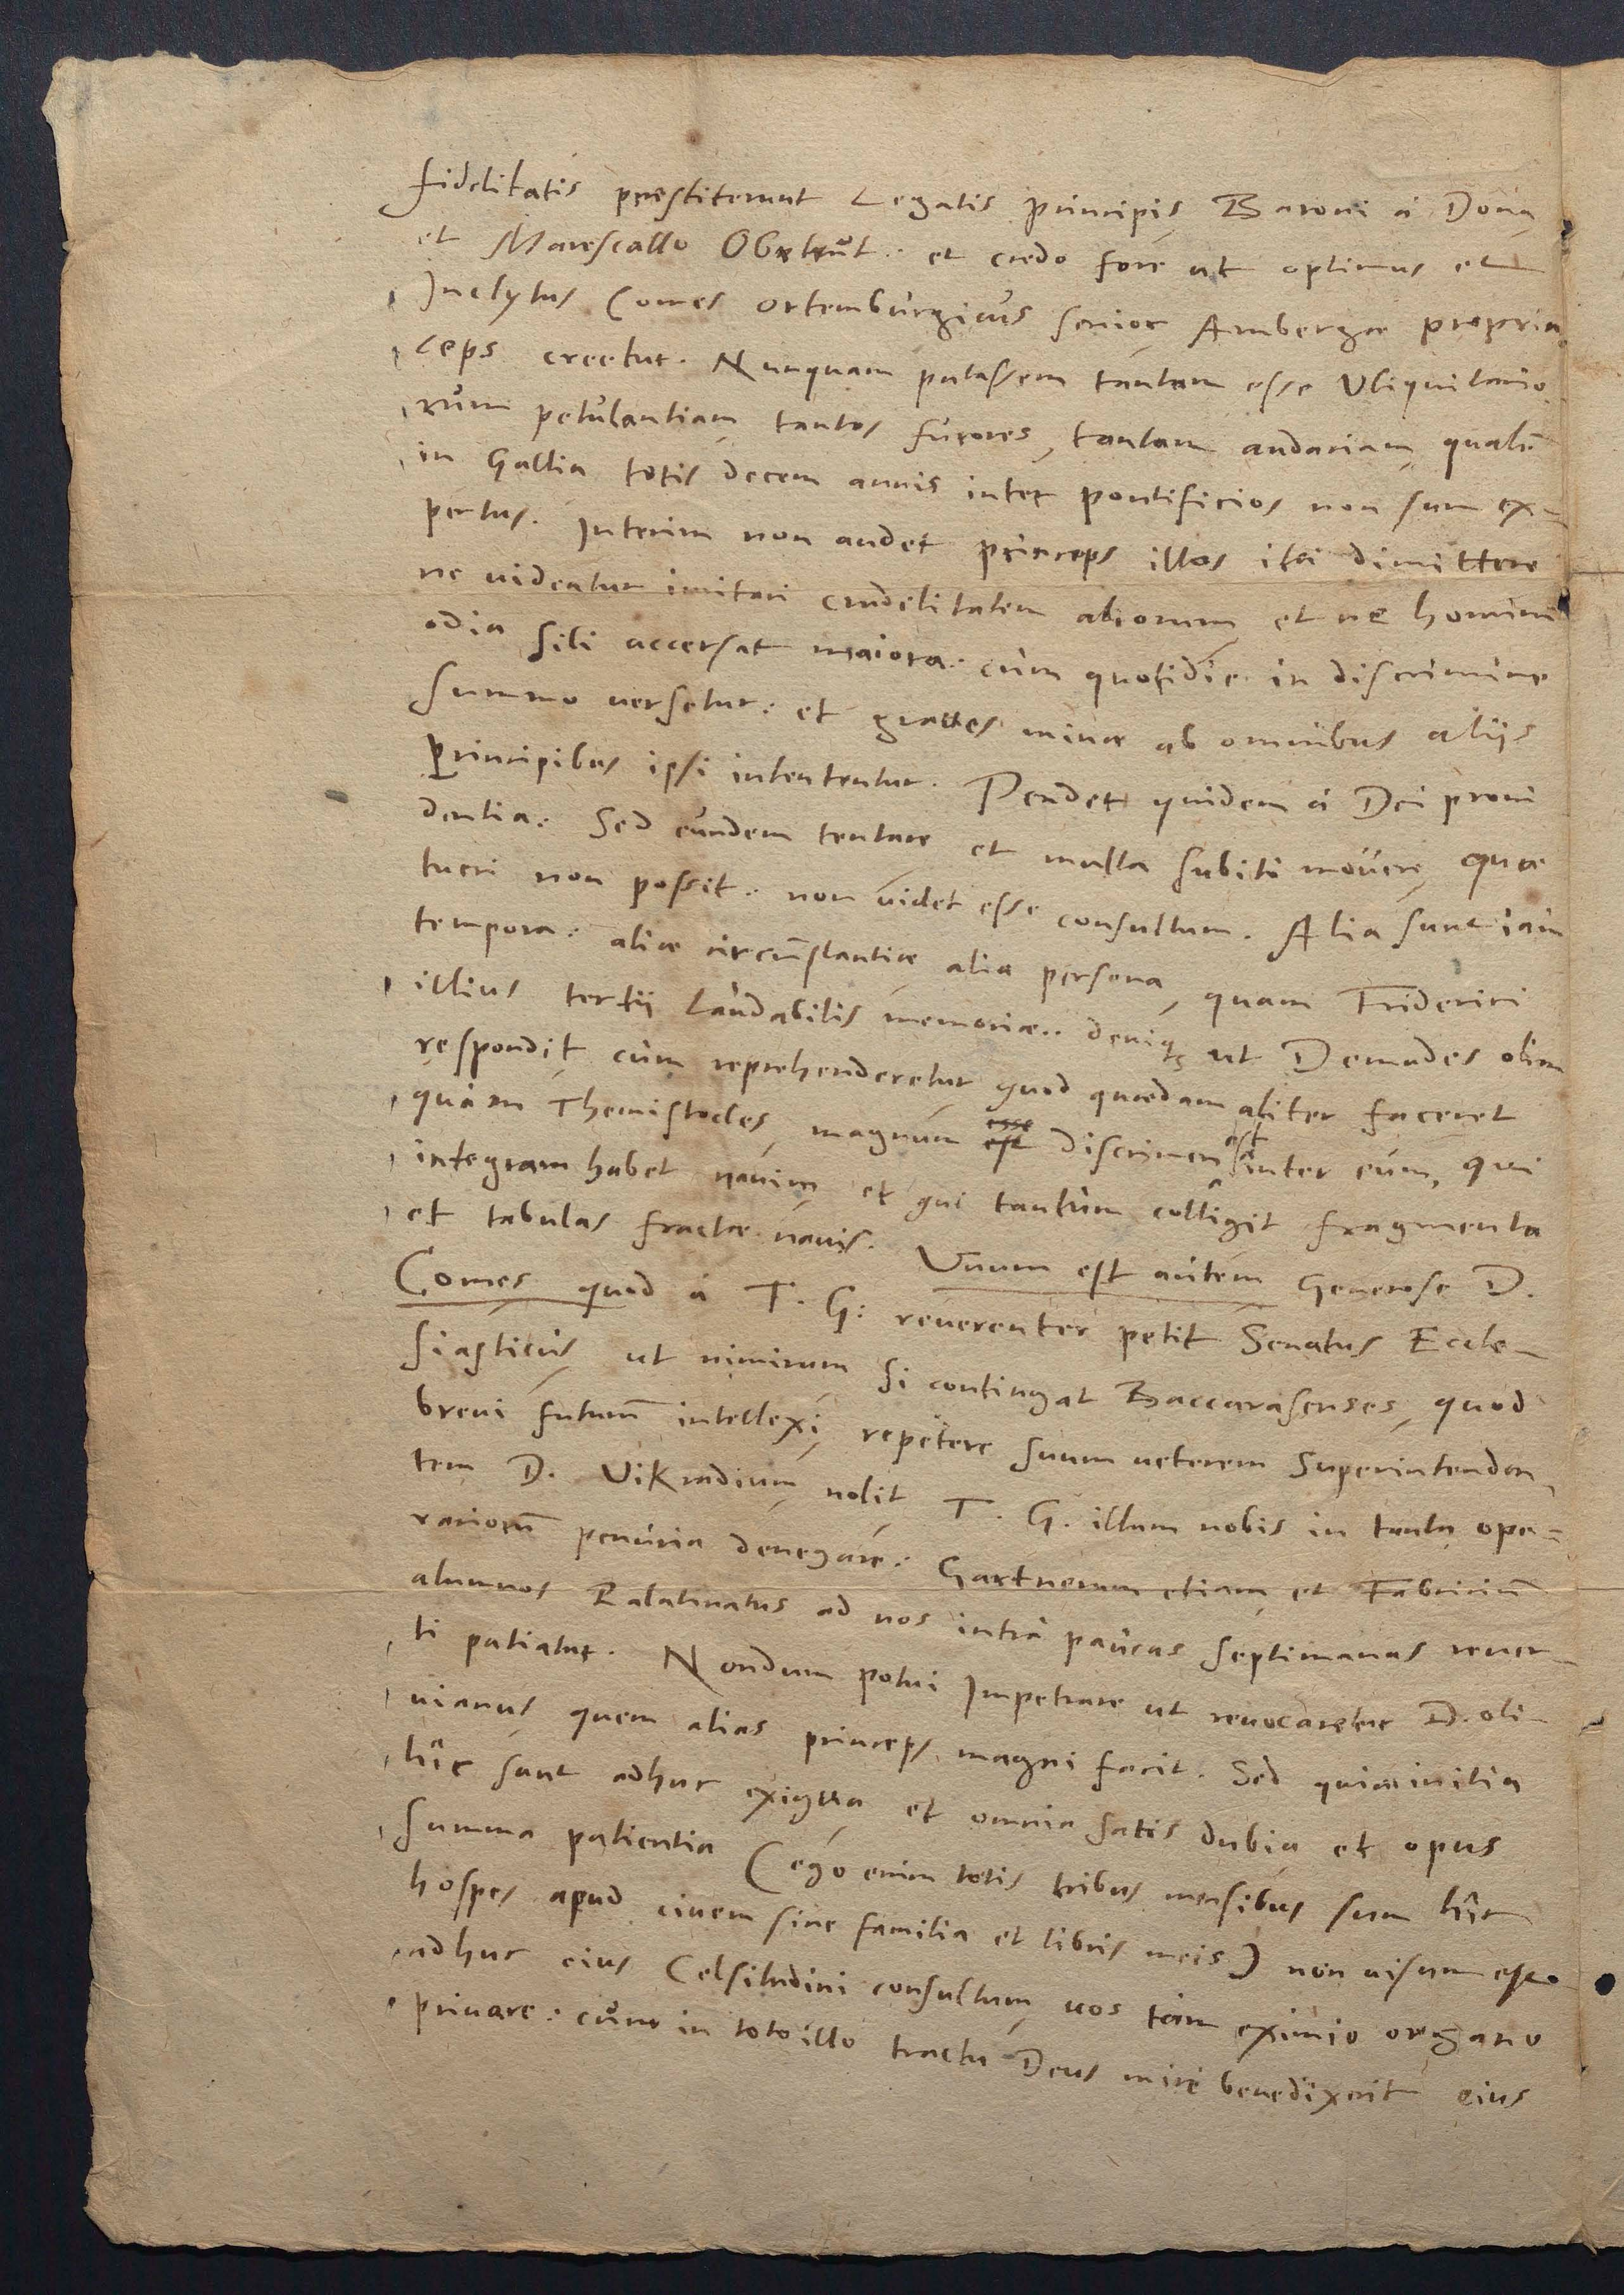 fidelitatis praestiterunt Legatis principis Baroni à Dona
et Marescallo Obtrut: et credo fore ut optimus et
Inclytus Comes Ortemburgicus senior Ambergae propria
ceps creetur. Nunquam putassem tantam esse Ubiquitario
rum petulantiam tantos furores, tantam audaciam, qualē
in Gallia totis decem annis inter pontificios non sum ex-
pertus. Interim non audet princeps illos ità dimittere
ne uideatur imitari crudelitatem aliorum, et ne hominū
odia sibi accersat maiora: cùm quotidie in discrimine
summo uersetur: et graues minae ab omnibus aliis
principibus ipsi intententur. Pendet quidem à Dei proui
dentia: Sed eundem tentare et multa subitò mouere, quae
tueri non possit: non uidet esse consultum. Alia sunt iam
tempora: aliae circūstantiae alia persona, quam Friderici
illius tertij laudabilis memoriae: deniq̨ ut Demades olim
respondit, cùm reprehenderetur quod quaedam aliter faceret
quàm Themistocles, magnum discrimen est inter eum, qui
integram habet nauim, et qui tantùm colligit fragmenta
et tabulas fractae nauis. Unum est autem Generose D.
Comes quod à T. G: reuerenter petit Senatus Eccle-
siasticus, ut nimirum si contingat Baccarasenses, quod
breui futurū intellexi, repetere suum ueterem Superintenden
tem D. Vikradium, nolit T. G. illum nobis in tanta ope-
rariorū penuria denegare: Gartnerum etiam et Fabriciū
alumnos Palatinatus ad nos intra paucas septimanas reuer-
ti patiatur. Nondum potui Impetrare ut reuocaretur D. oli-
uianus, quem alias princeps magni facit. Sed quia initia
hîc sunt adhuc exigua et omnia satis dubia et opus
summa patientia (ego enim totis tribus mensibus sum hîc
hospes apud ciuem sine familia et libris meis) non uisum est
adhuc eius Celsitudini consultum, uos tam eximio organo
priuare: cùm in toto illo tractu Deus mirè benedixerit eius